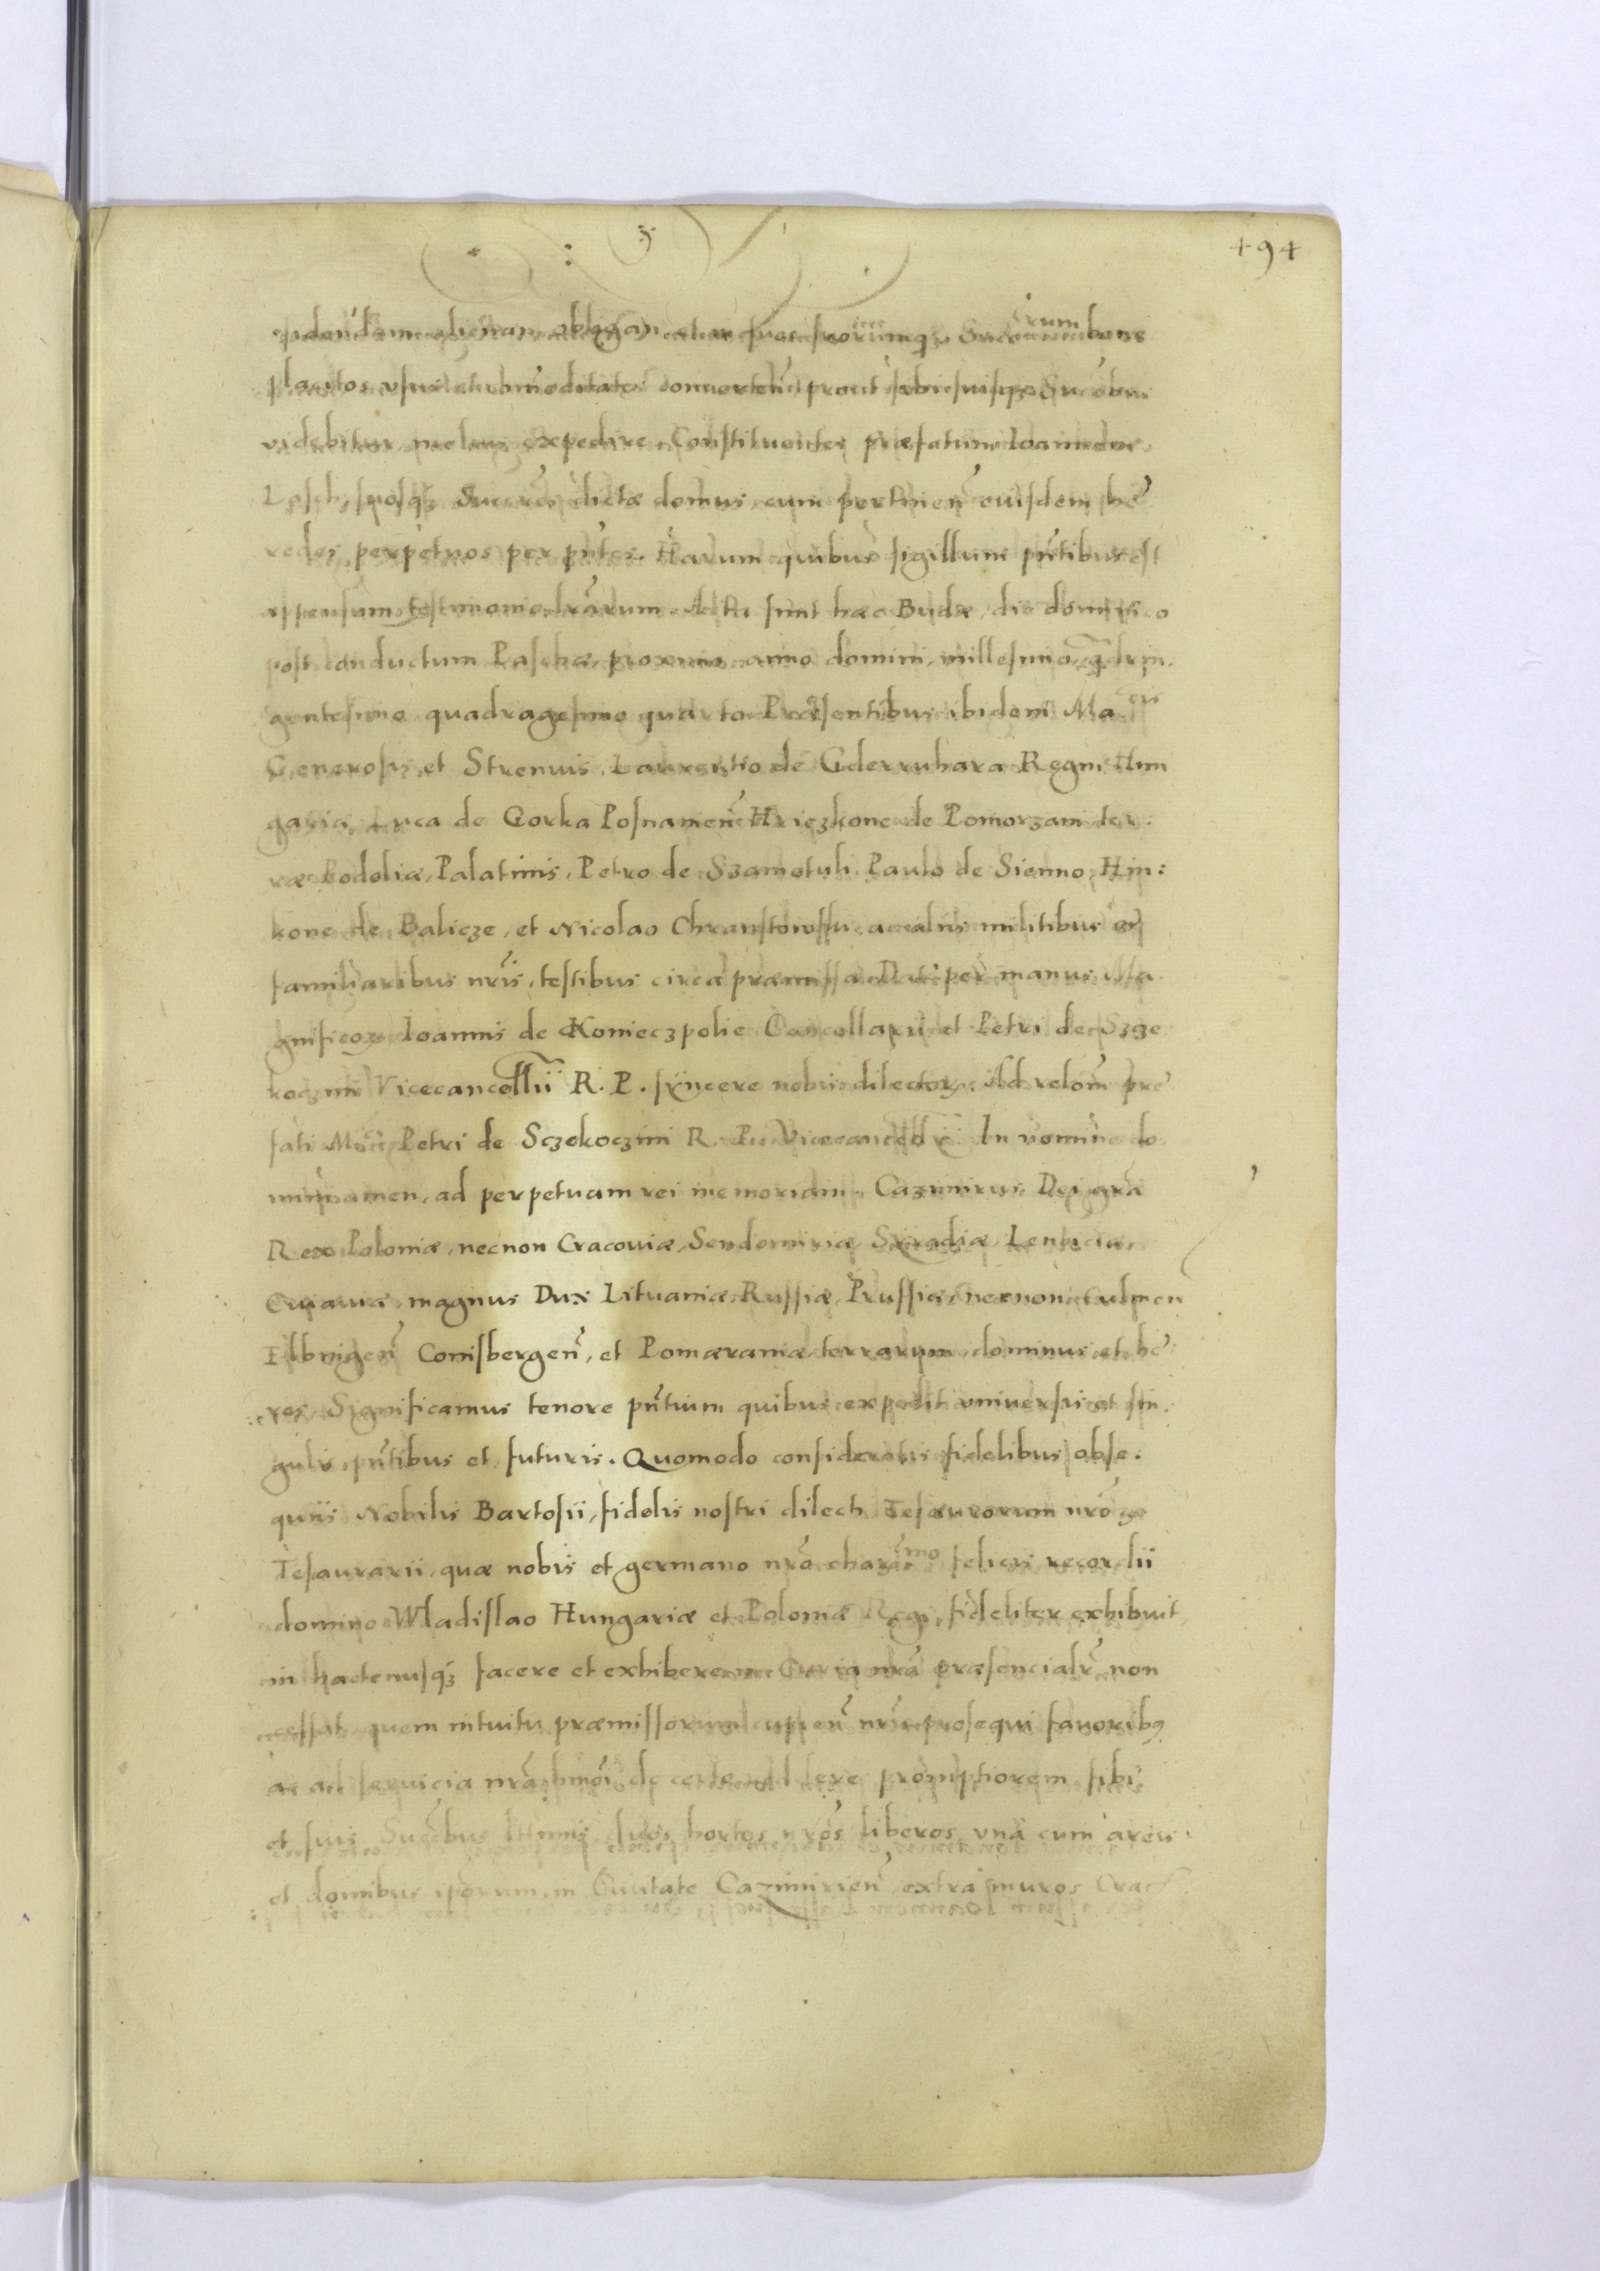 494
donan̄ alienan̄ obligan̄ suos suorumq̃ Succ̃rum bene
placitos vsus et com̄oditates conuerten̄ prout sibi suisq; Succ̃bus
videbitur melius expedire. Constituentes præfatum Ioannem
Losch, suosq; Succ̃res dictæ domus cum pertinen̄ euisdem he
redes perpetuos per pn̄tes. Harum quibus sigillum pn̄tibus est
appensum testimonio lr̃arum. Acta sunt hæc Budæ, die dominico
post conductum Paschæ proximo anno domini millesimo q̃drin.
gentesimo quadragesimo quarto Præsentibus ibidem Ma
Generosis et Strenuis, Laurentio de Hederuhara Regni Hun
gariæ, Luca de Gorka Posnanien̄ Hriczkone de Pomorzani ter.
ræ Podoliæ, Palatinis, Petro de Szamotuli Paulo de Sienno, Hin:
kone de Balicze, et Nicolao Chranstowski ac aliis militibus et
familiaribus nr̃is, testibus circa præmissa Dat per manus Ma
gnificoꝝ Ioannis de Konieczpolie Cancellarii et Petri de Szcze
koczini Vicecancellii R. P. syncere nobis dilectoꝝ. Ad relom̄ pre
fati Petri de Sczekoczini R. P. Vicecancel In nomine do
mini amen, ad perpetuam rei memoriam. Cazimirus Dei gr̃a
Rex Poloniæ, necnon Cracoviæ, Sendomiriæ Syradiæ Lenciciæ
Cuiauiæ, magnus Dux Lituaniæ Russiæ, Prussiæ, necnon Culmen
Elbnigen̄ Conisbergen̄, et Pomæraniæ terrarum dominus et he
res. Significamus tenore pn̄tium quibus expedit vniuersis et sin.
gulis pn̄tibus et futuris. Quomodo consideratis fidelibus obse.
quiis Nobilis Bartosii, fidelis nostri dilecti Tesaurorum nr̃oꝝ
Tesaurarii, quæ nobis et germano nr̃o charmo felicis recordii
domino Wladislao Hungariæ et Poloniæ Regi, fideliter exhibuit
hactenusq; facere et exhibere in Curia nr̃a præsencialr̃ non
cessat quem intuitu præmissorum cupien̄ nr̃is prosequi fauoribꝯ
ac ad seruicia nr̃a de cetero reddere promptiorem, sibi
et suis Succ̃bus duos hortos nr̃os liberos vnã cum areis
et domibus ipsorum in Ciuitate Cazimirien̄ extra muros Crac